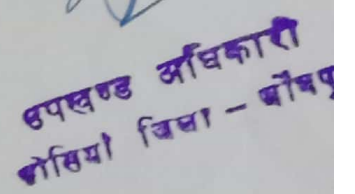 उपखण्ड अधिकारी
ओसियां जिला - जोधपु